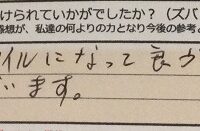 けられていかがでしたか？（ズバ
感想が、私達の何よりの力となり今後の参考
イルになって良か
います。